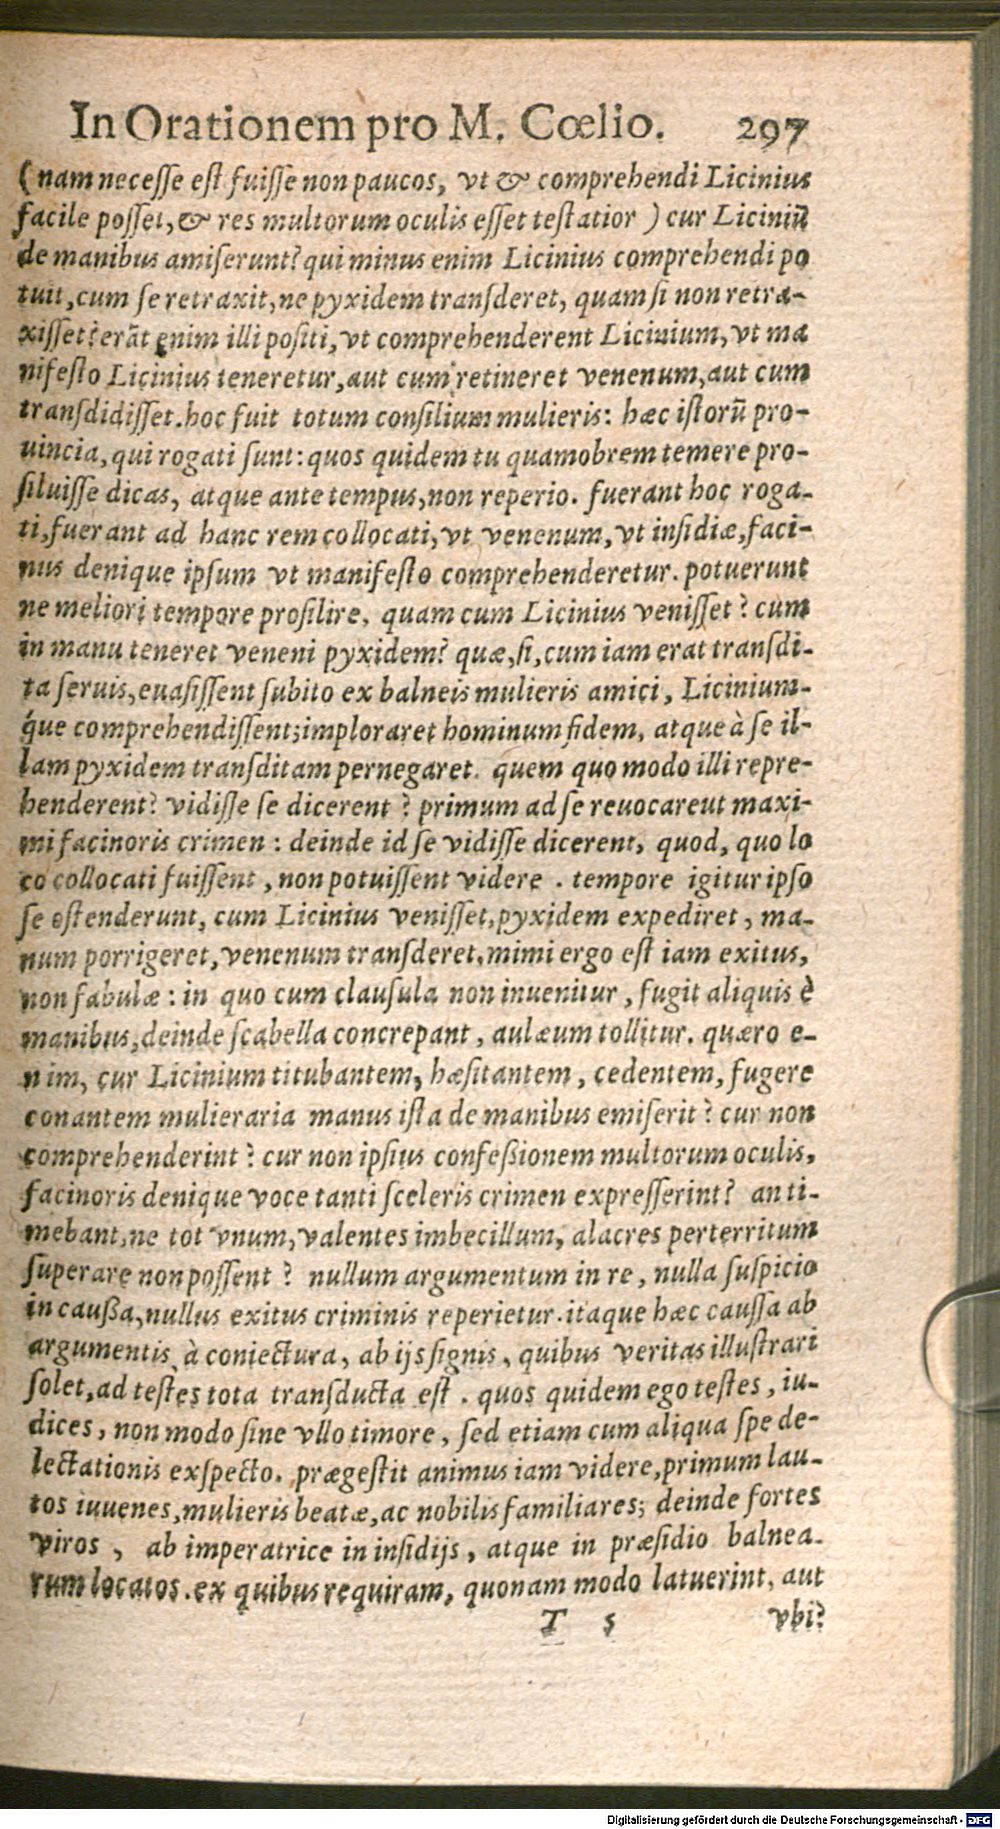 In Orationem pro M. Cœlio. 297
(nam necesse est fuisse non paucos, vt & comprehendi Licinius
facile posset, & res multorum oculis esset testatior) cur Liciniū
de manibus amiserunt? qui minus enim Licinius comprehendi po
tuit, cum se retraxit, ne pyxidem transderet, quam si non retra-
xisset? erāt enim illi positi, vt comprehenderent Licinium, vt ma
nifesto Licinius teneretur, aut cum retineret venenum, aut cum
transdidisset. hoc fuit totum consilium mulieris: hæc istorū pro-
uincia, qui rogati sunt: quos quidem tu quamobrem temere pro-
siluisse dicas, atque ante tempus, non reperio. fuerant hoc roga-
ti, fuerant ad hanc rem collocati, vt venenum, vt insidiæ, faci-
nus denique ipsum vt manifesto comprehenderetur. potuerunt
ne meliori tempore prosilire, quam cum Licinius venisset? cum
in manu teneret veneni pyxidem? quæ, si, cum iam erat transdi-
ta seruis, euasissent subito ex balneis mulieris amici, Licinium-
q́ue comprehendissent; imploraret hominum fidem, atque à se il-
lam pyxidem transditam pernegaret. quem quo modo illi repre-
henderent? vidisse se dicerent? primum ad se reuocareut maxi-
mi facinoris crimen: deinde id se vidisse dicerent, quod, quo lo
co collocati fuissent, non potuissent videre. tempore igitur ipso
se ostenderunt, cum Licinius venisset, pyxidem expediret, ma-
num porrigeret, venenum transderet. mimi ergo est iam exitus,
non fabulæ: in quo cum clausula non inuenitur, fugit aliquis è
manibus, deinde scabella concrepant, aulæum tollitur. quæro e-
nim, cur Licinium titubantem, hæsitantem, cedentem, fugere
conantem mulieraria manus ista de manibus emiserit? cur non
comprehenderint? cur non ipsius confeßionem multorum oculis,
facinoris denique voce tanti sceleris crimen expresserint? an ti-
mebant, ne tot vnum, valentes imbecillum, alacres perterritum
superare non possent? nullum argumentum in re, nulla suspicio
in caußa, nullus exitus criminis reperietur. itaque hæc caussa ab
argumentis, à coniectura, ab ijs signis, quibus veritas illustrari
solet, ad testes tota transducta est. quos quidem ego testes, iu-
dices, non modo sine vllo timore, sed etiam cum aliqua spe de-
lectationis exspecto. prægestit animus iam videre, primum lau-
tos iuuenes, mulieris beatæ, ac nobilis familiares; deinde fortes
viros, ab imperatrice in insidijs, atque in præsidio balnea-
rum locatos. ex quibus requiram, quonam modo latuerint, aut
T 5 vbi?
Digitalisierung gefördert durch die Deutsche Forschungsgemeinschaft - DFG